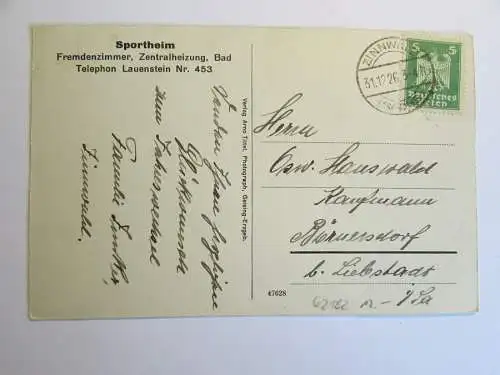 Sportheim
Fremdenzimmer, Zentralheizung, Bad
Telephon Lauenstein Nr. 453
Senden Ihnen herzliche
Glückwünsche
zum Jahreswechsel
Familie
Zinnwald.
Verlag Arno Tittel, Photograph, Geising-Erzgeb.
47628
ZINNWALD
31.12.26.
5 5
Deutsches
Reich
Herrn
Osw. Hauswald
Kaufmann
Börnersdorf
b. Liebstadt
i/Sa